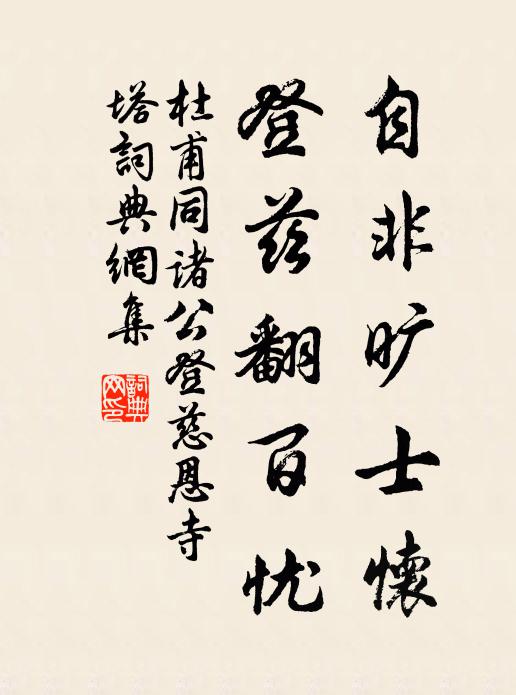 自非旷士懷
登茲翻百忧
杜甫同諸公登慈恩寺
塔詞典網集
詞典
网印